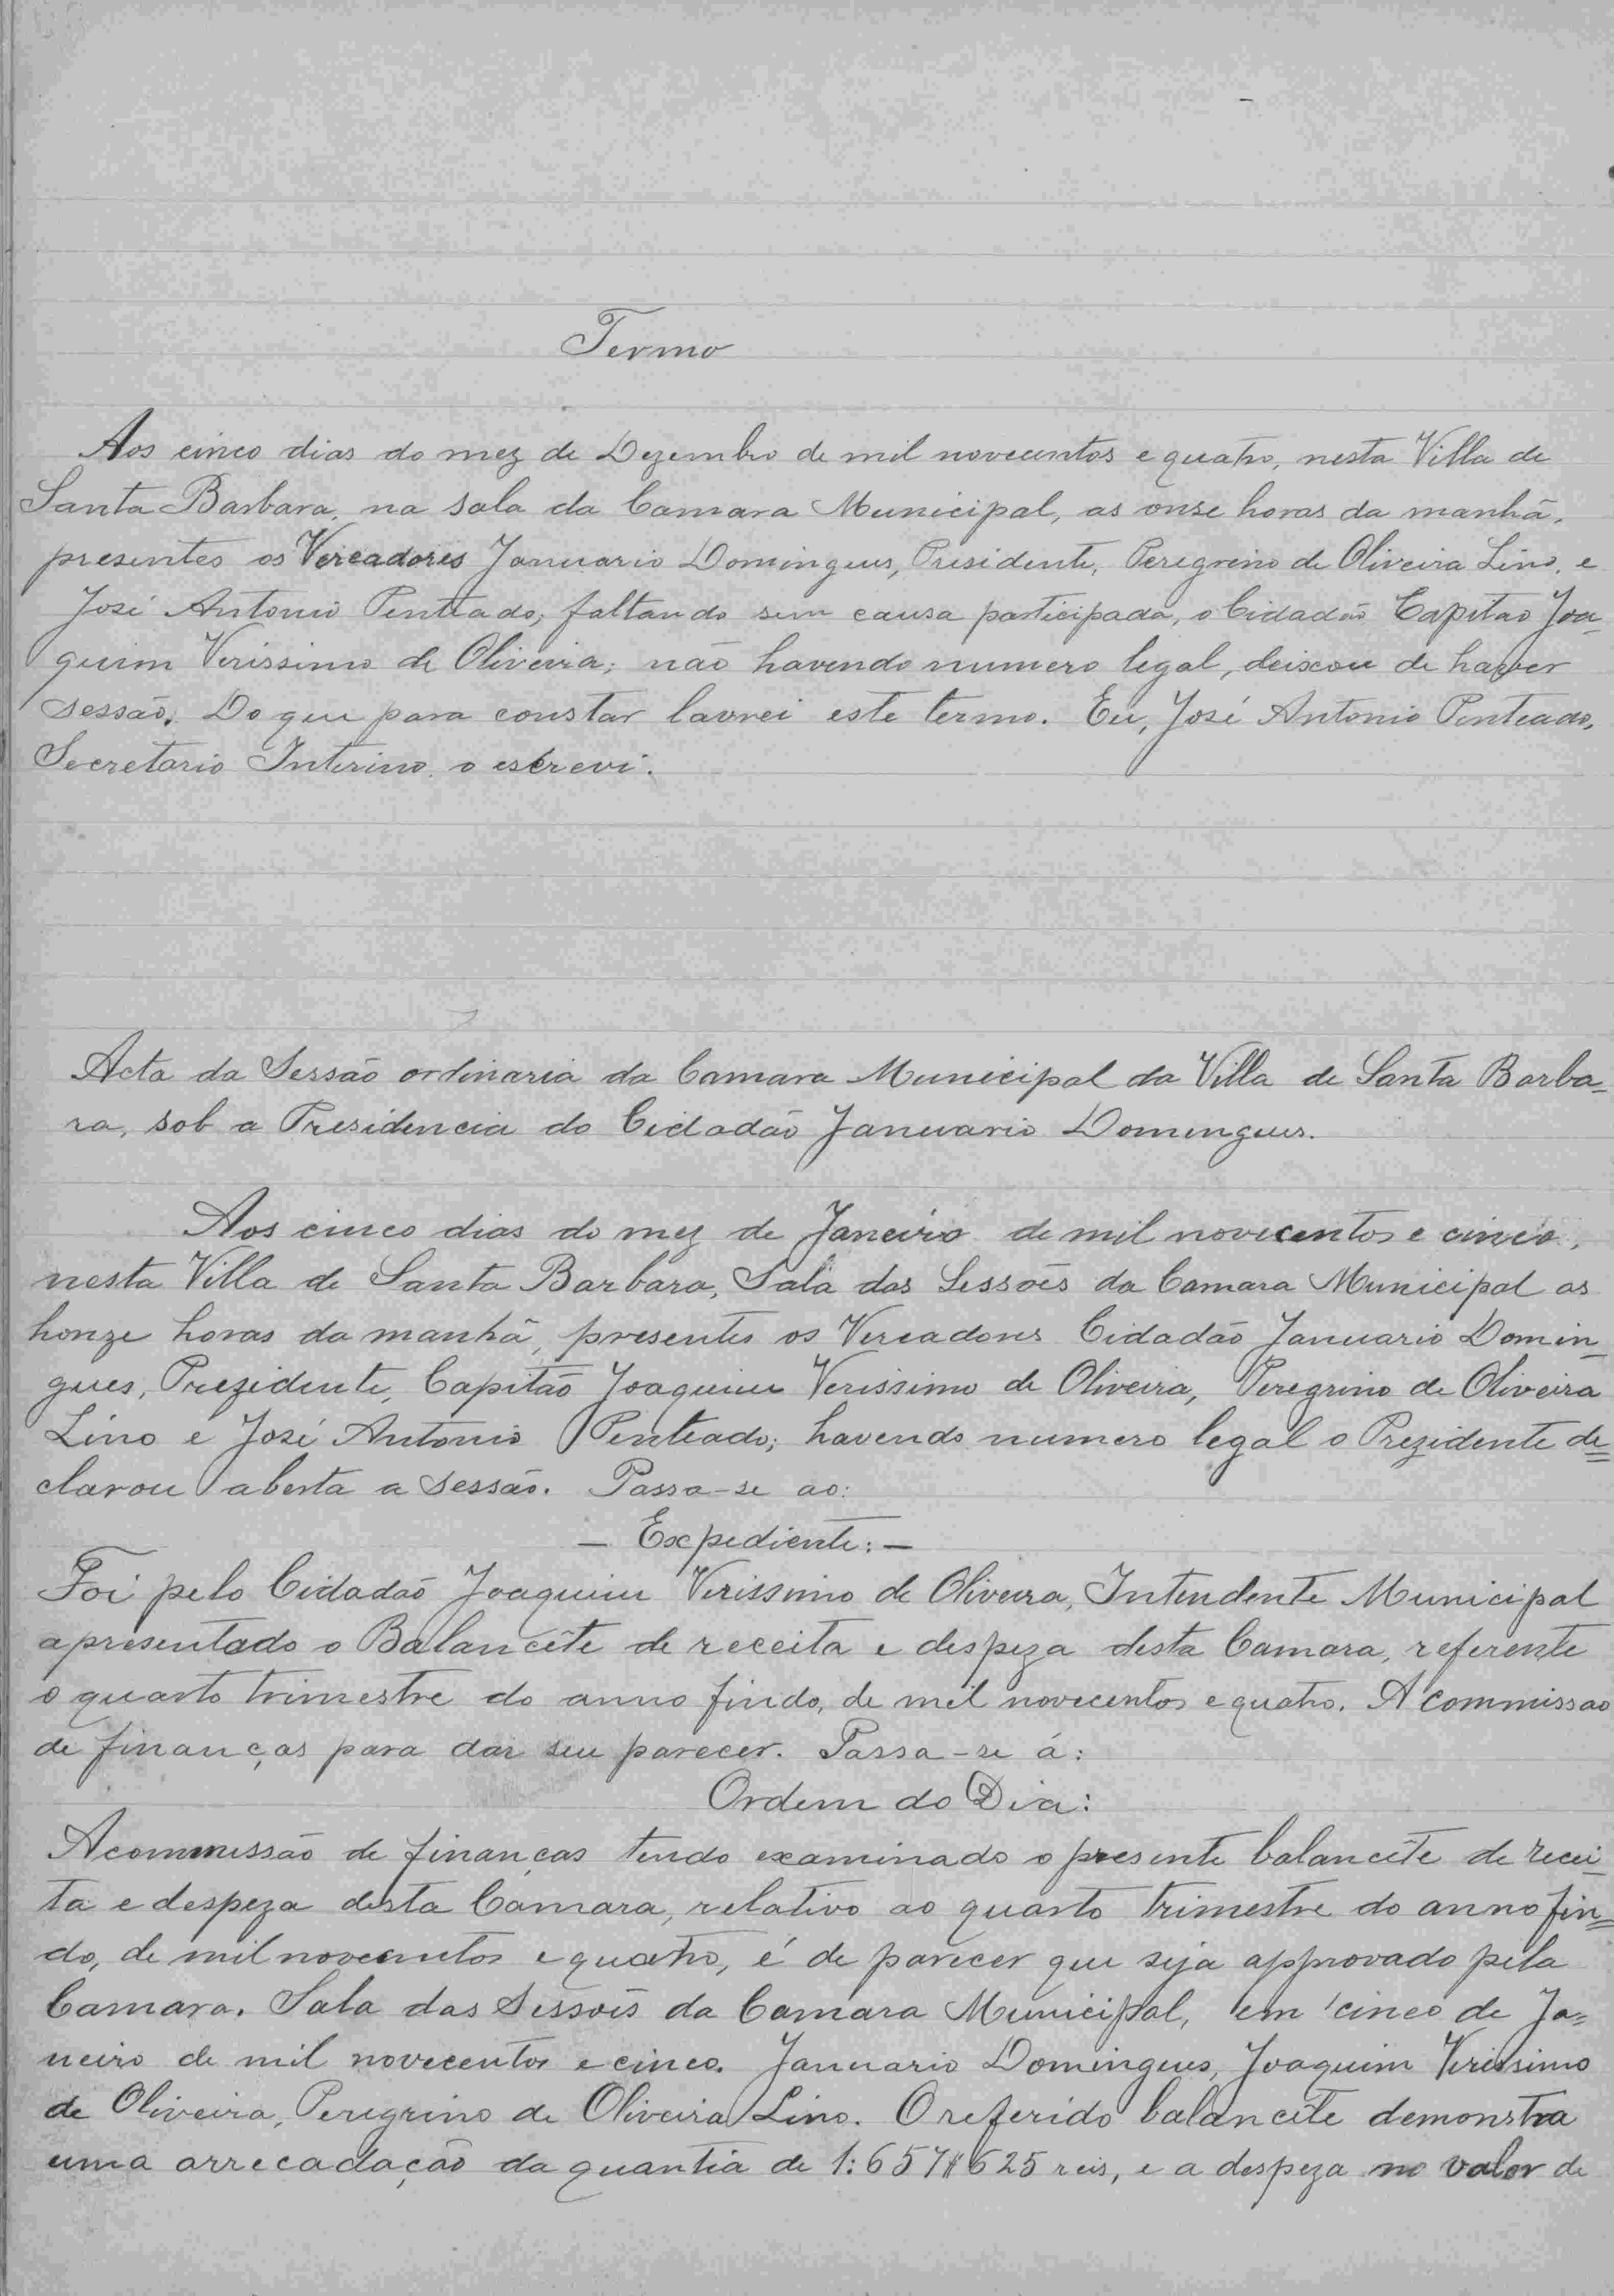 Termo
Aos cinco dias do mez de Dezembro de mil novecentos e quatro, nesta Villa de
Santa Barbara, na sala da Camara Municipal, as onse horas da manhã,
presentes os Vereadores Januario Domingues, Presidente, Peregrino de Oliveira Lino, e
José Antonio Penteado; faltando sem causa participada, o Cidadão Capitão Joa-
quim Verissimo de Oliveira; não havendo numero legal, deixou de haver
sessão. Do que para constar lavrei este termo. Eu, José Antonio Penteado,
Secretario Interino, o escrevi.
Acta da Sessão ordinaria da Camara Municipal da Villa de Santa Barba=
ra, sob a Presidencia do Cidadão Januario Domingues.
Aos cinco dias do mez de Janeiro de mil novecentos e cinco,
nesta Villa de Santa Barbara, Sala das Sessões da Camara Municipal as
honze horas da manhã, presentes os Vereadores Cidadão Januario Domin=
gues, Prezidente, Capitão Joaquim Verissimo de Oliveira, Peregrino de Oliveira
Lino e José Antonio Penteado; havendo numero legal o Prezidente de=
clarou aberta a sessão. Passa-se ao:
— Expediente: —
Foi pelo Cidadão Joaquim Verissimo de Oliveira, Intendente Municipal
apresentado o Balancête de receita e despeza desta Camara, referente
o quarto trimestre do anno findo, de mil novecentos e quatro. A commissao
de finanças para dar seu parecer. Passa-se á:
Ordem do Dia:
A commissão de finanças tendo examinado o presente balancête de recei=
ta e despeza desta Camara, relativo ao quarto trimestre do anno fin=
do, de mil novecentos e quatro, é de parecer que seja approvado pela
Camara. Sala das Sessões da Camara Municipal, em cinco de Ja=
neiro de mil novecentos e cinco. Januario Domingues, Joaquim Verissimo
de Oliveira, Peregrino de Oliveira Lino. O referido balancête demonstra
uma arrecadação da quantia de 1:657$625 reis, e a despeza no valor de